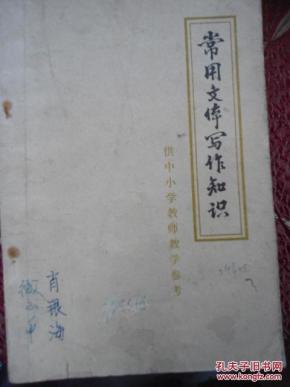 常用文体写作知识
供中小学教师教学参考
肖银海
孔夫子旧书网